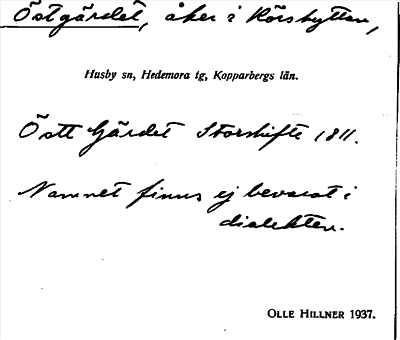 Östgärdet, åker i Körshyttan,
Husby sn, Hedemora tg, Kopparbergs län.
Öst Gärdet Storskifte 1811.
Namnet finns ej bevarat i
dialekten.
OLLE HILLNER 1937.